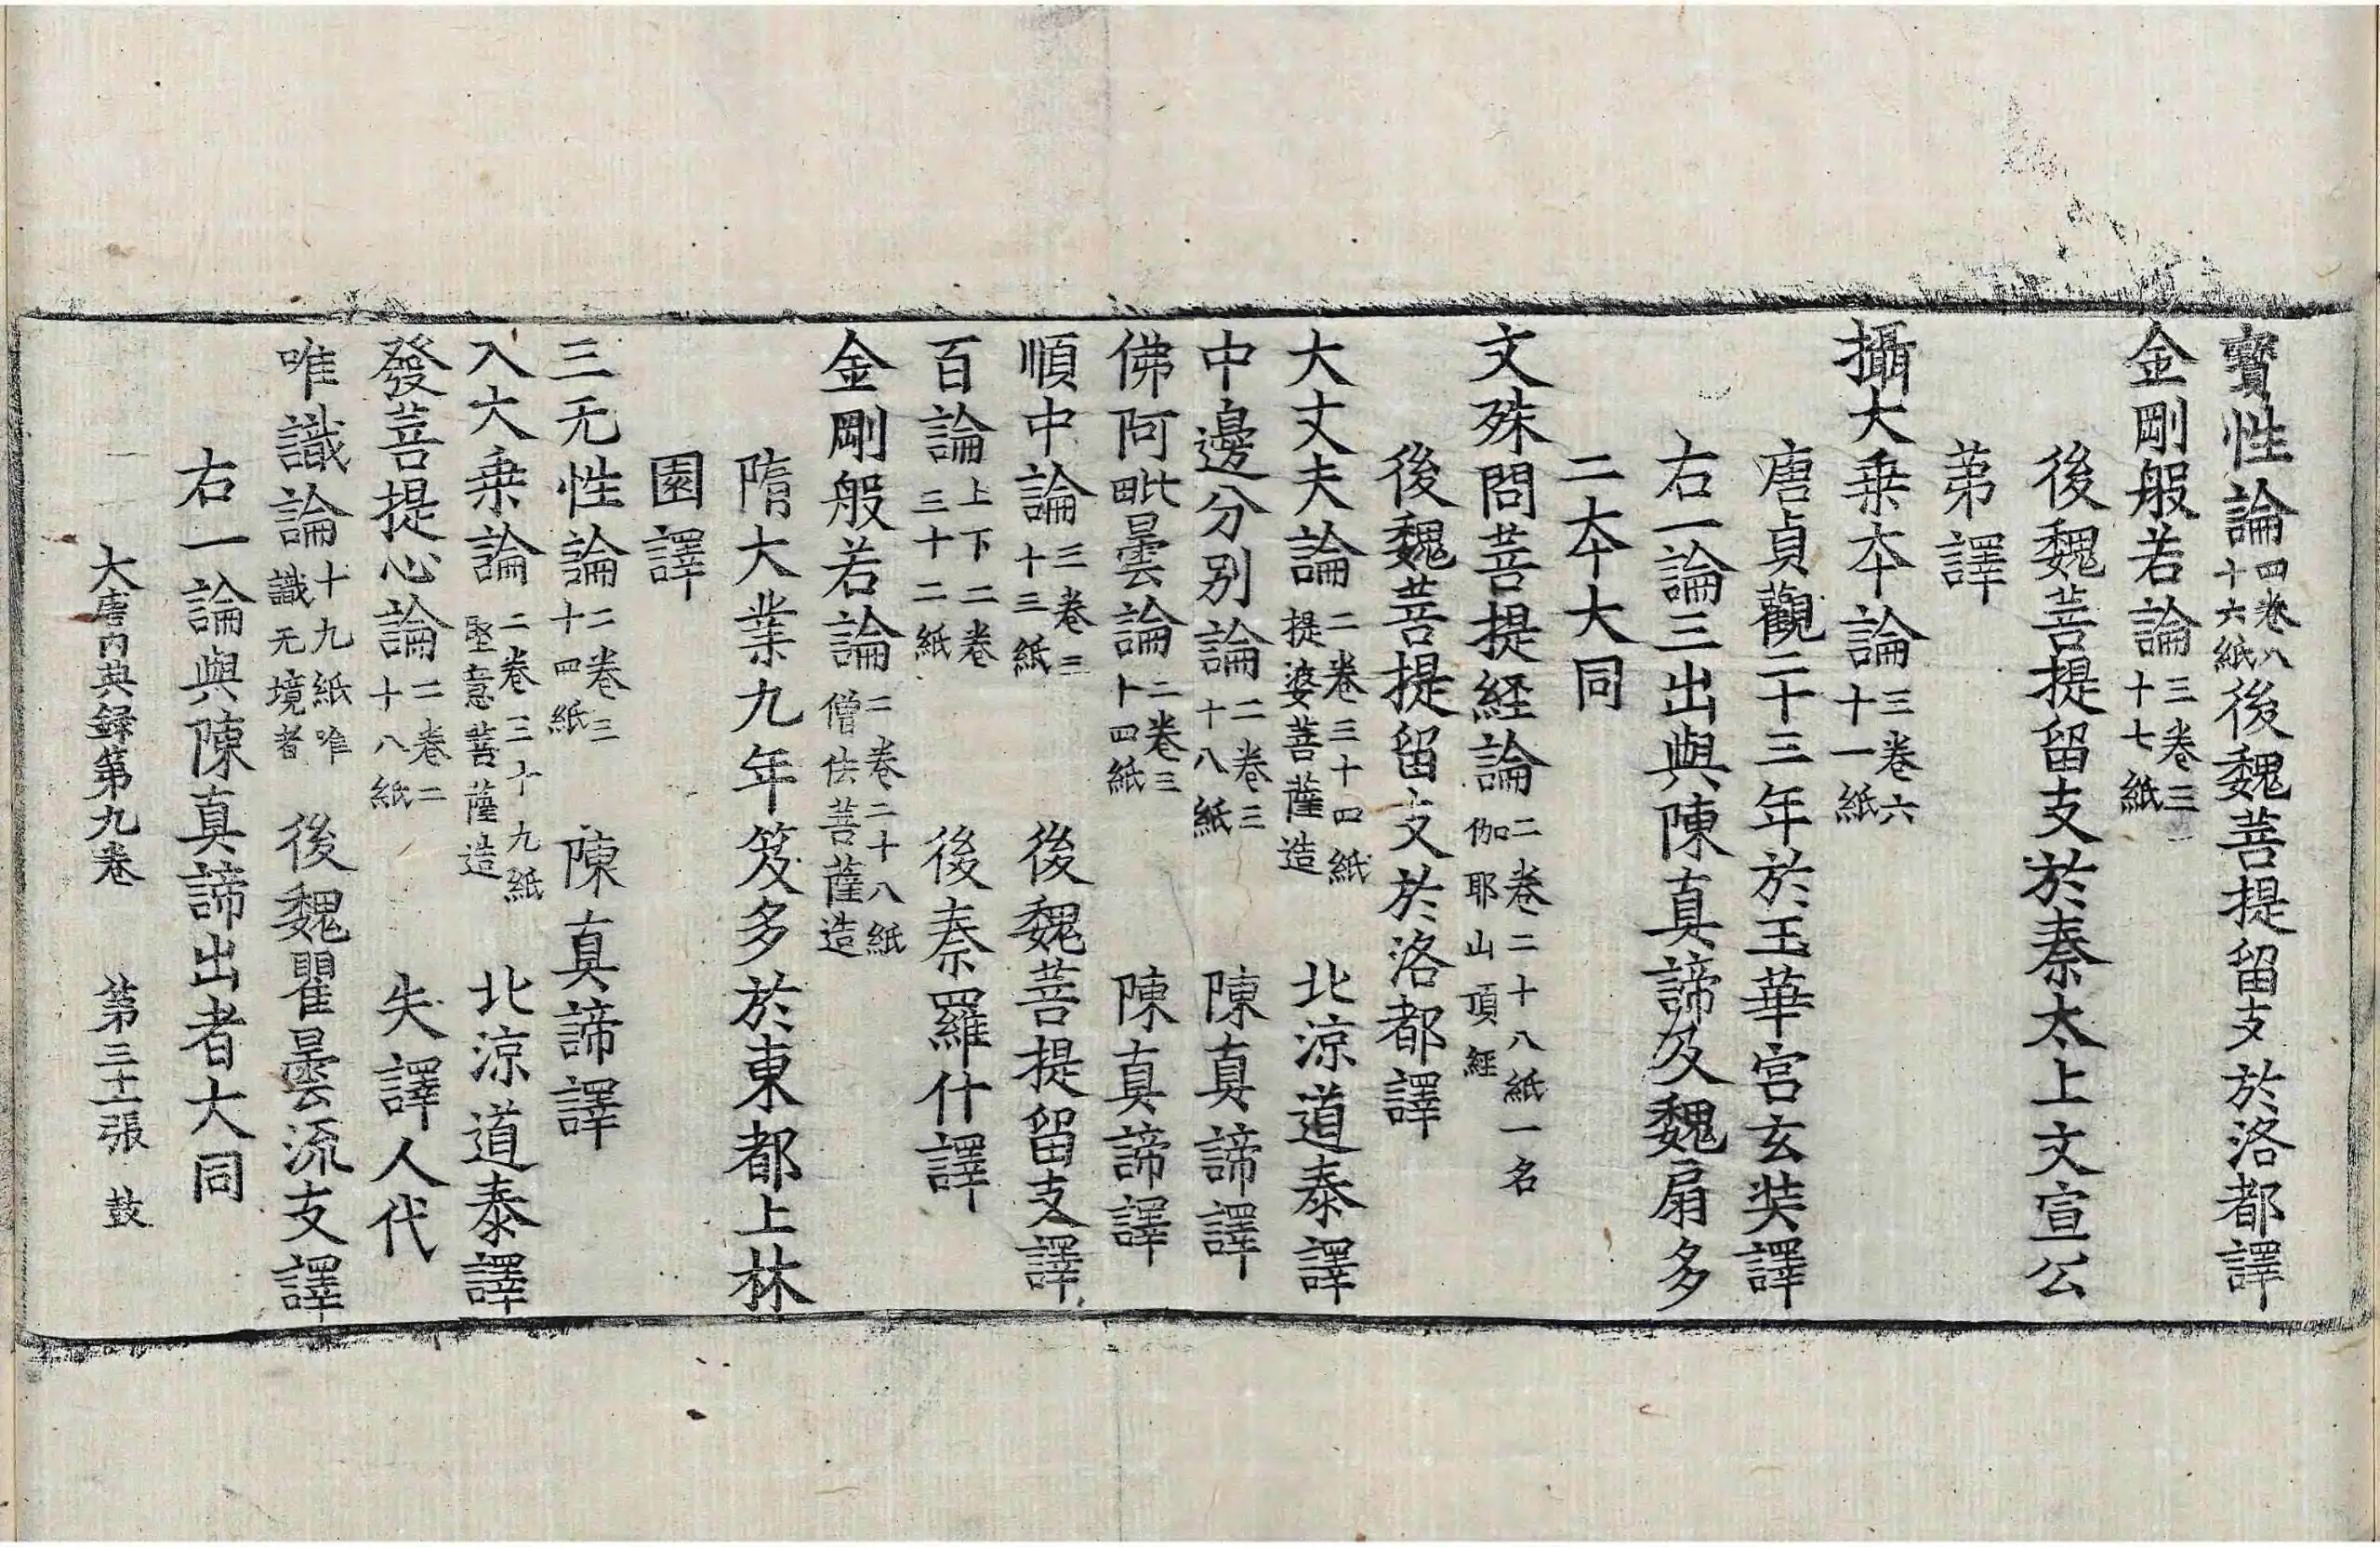 寶性論四卷八十六紙後魏菩提留支於洛都譯
金剛般若論三卷三十七紙
後魏菩提留支於秦太上文宣公
第譯
攝大乗本論三卷六十一紙
唐貞觀二十三年於玉華宮玄奘譯
右一論三出與陳真諦及魏扇多
二本大同
文殊問菩提経論二卷二十八紙一名伽耶山頂經
後魏菩提留支於洛都譯
大丈夫論二卷三十四紙提婆菩薩造 北涼道泰譯
中邊分別論二卷三十八紙 陳真諦譯
佛阿毗曇論二卷三十四紙 陳真諦譯
順中論三卷三十三紙 後魏菩提留支譯
百論上下二卷三十二紙 後秦羅什譯
金剛般若論二卷二十八紙僧佉菩薩造
隋大業九年笈多於東都上林
園譯
三无性論二卷三十四紙 陳真諦譯
入大乗論二卷三十九紙堅意菩薩造 北涼道泰譯
發菩提心論二卷二十八紙 失譯人代
唯識論十九紙唯識无境者 後魏瞿曇流支譯
右一論與陳真諦出者大同
大唐内典録第九卷 第三十二張 鼓